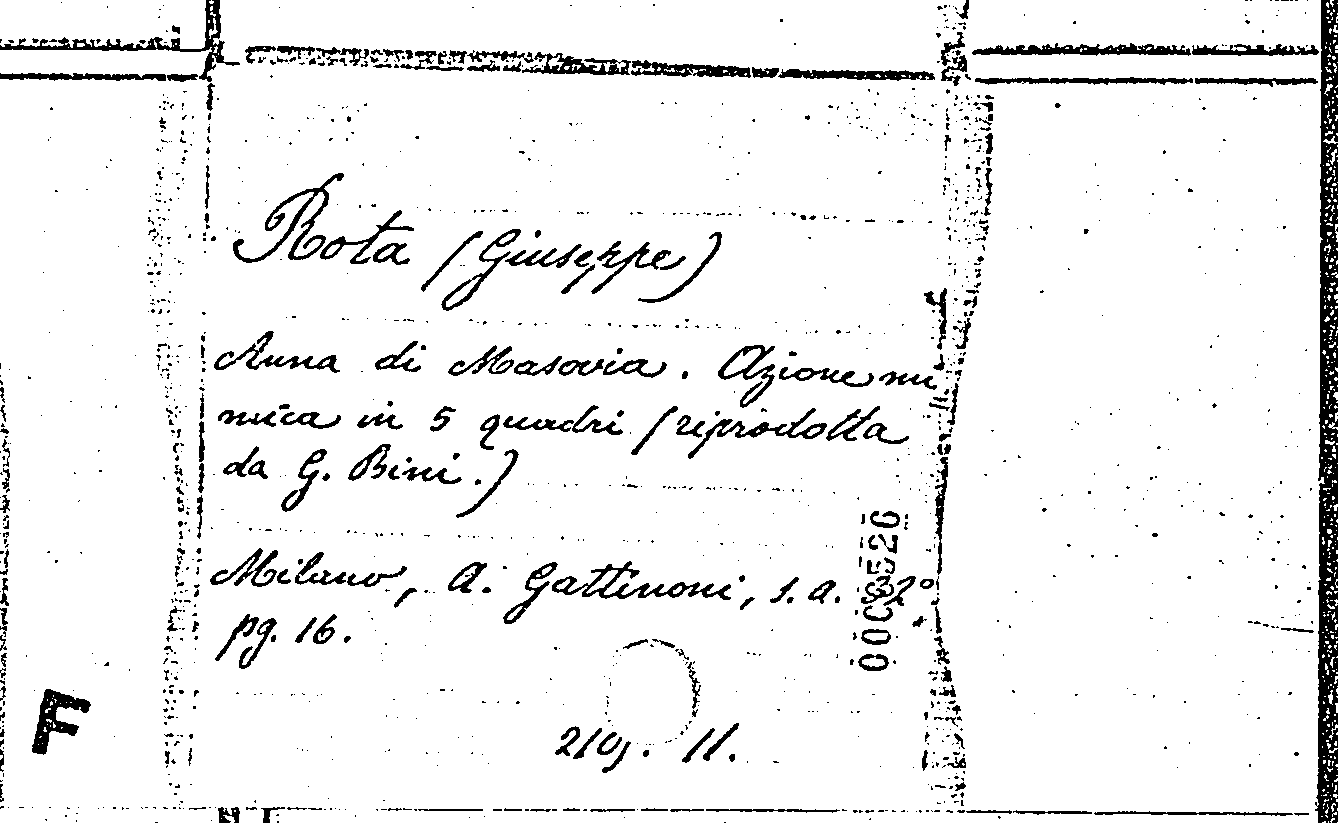 Rota (Giuseppe)
Anna di Masovia. Azione mi
mica in 5 quadri (riprodotta
da G. Bini.)
Milano, A. Gattinoni, s. a. 32°
pg. 16.
11.
F